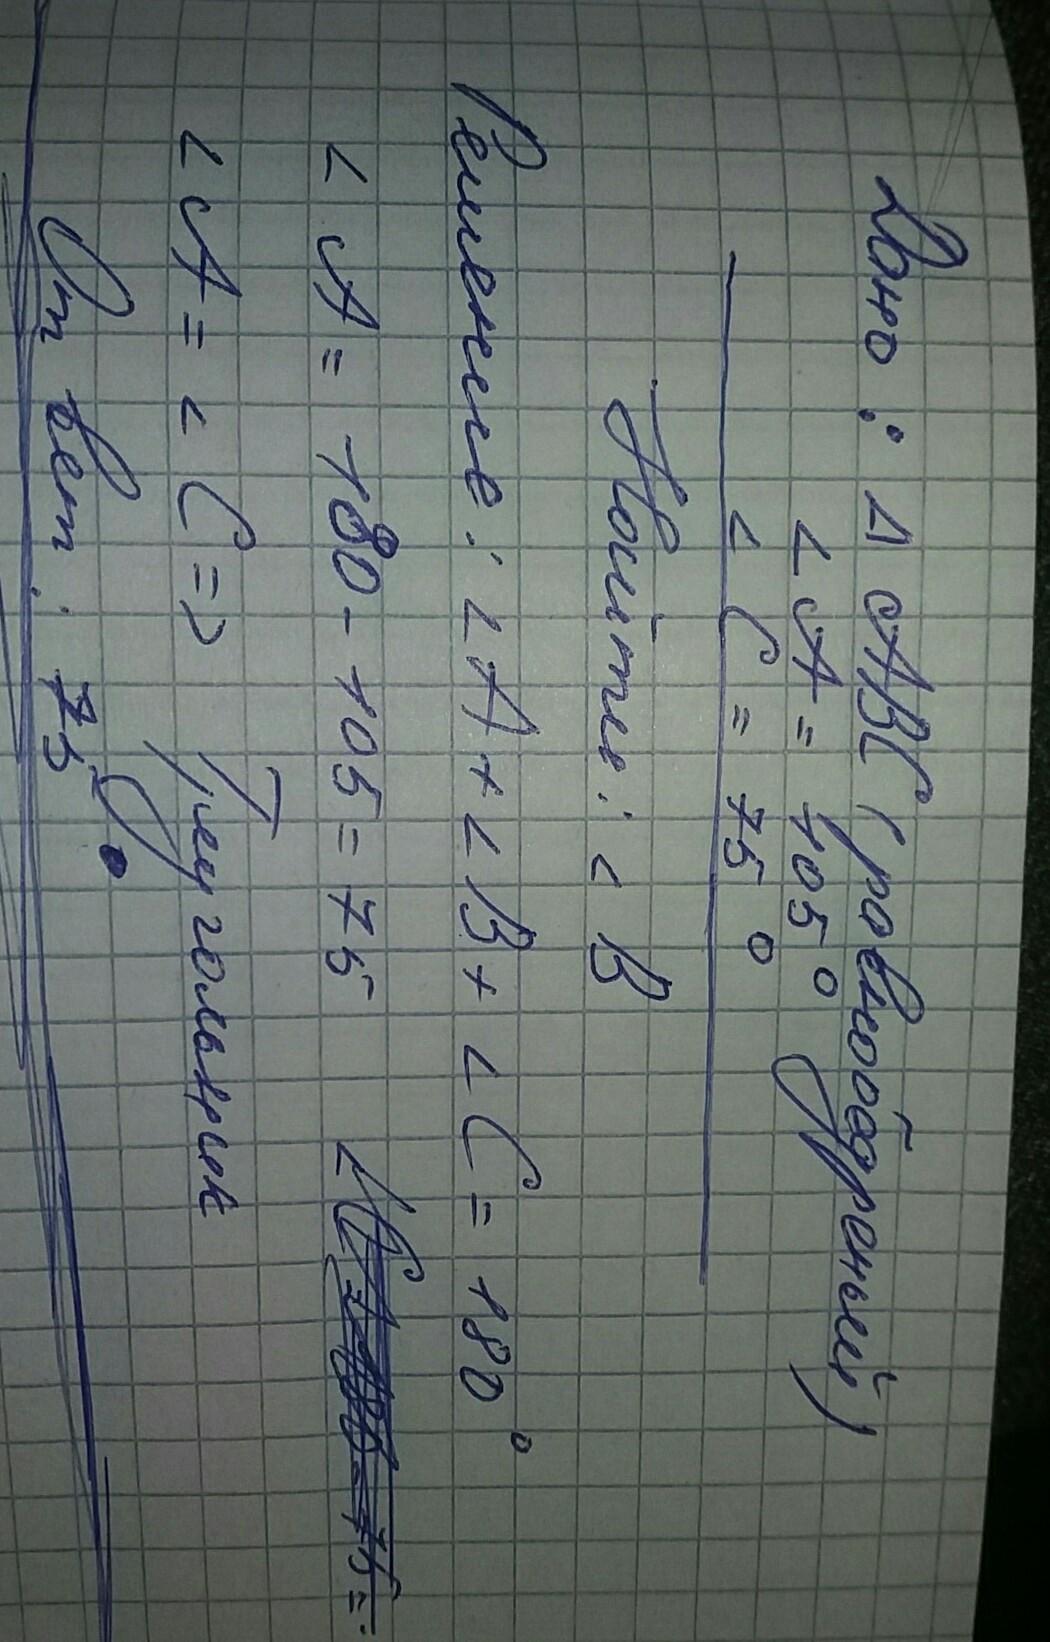 Дано: Δ ABC (равнобдреный)
∠ A = 105°
∠ C = 75°
Найти: ∠ B
Решение: ∠A + ∠B + ∠C = 180°
∠ A = 180 - 105 = 75
∠ A = ∠ C => Треугольник
Ответ: 75